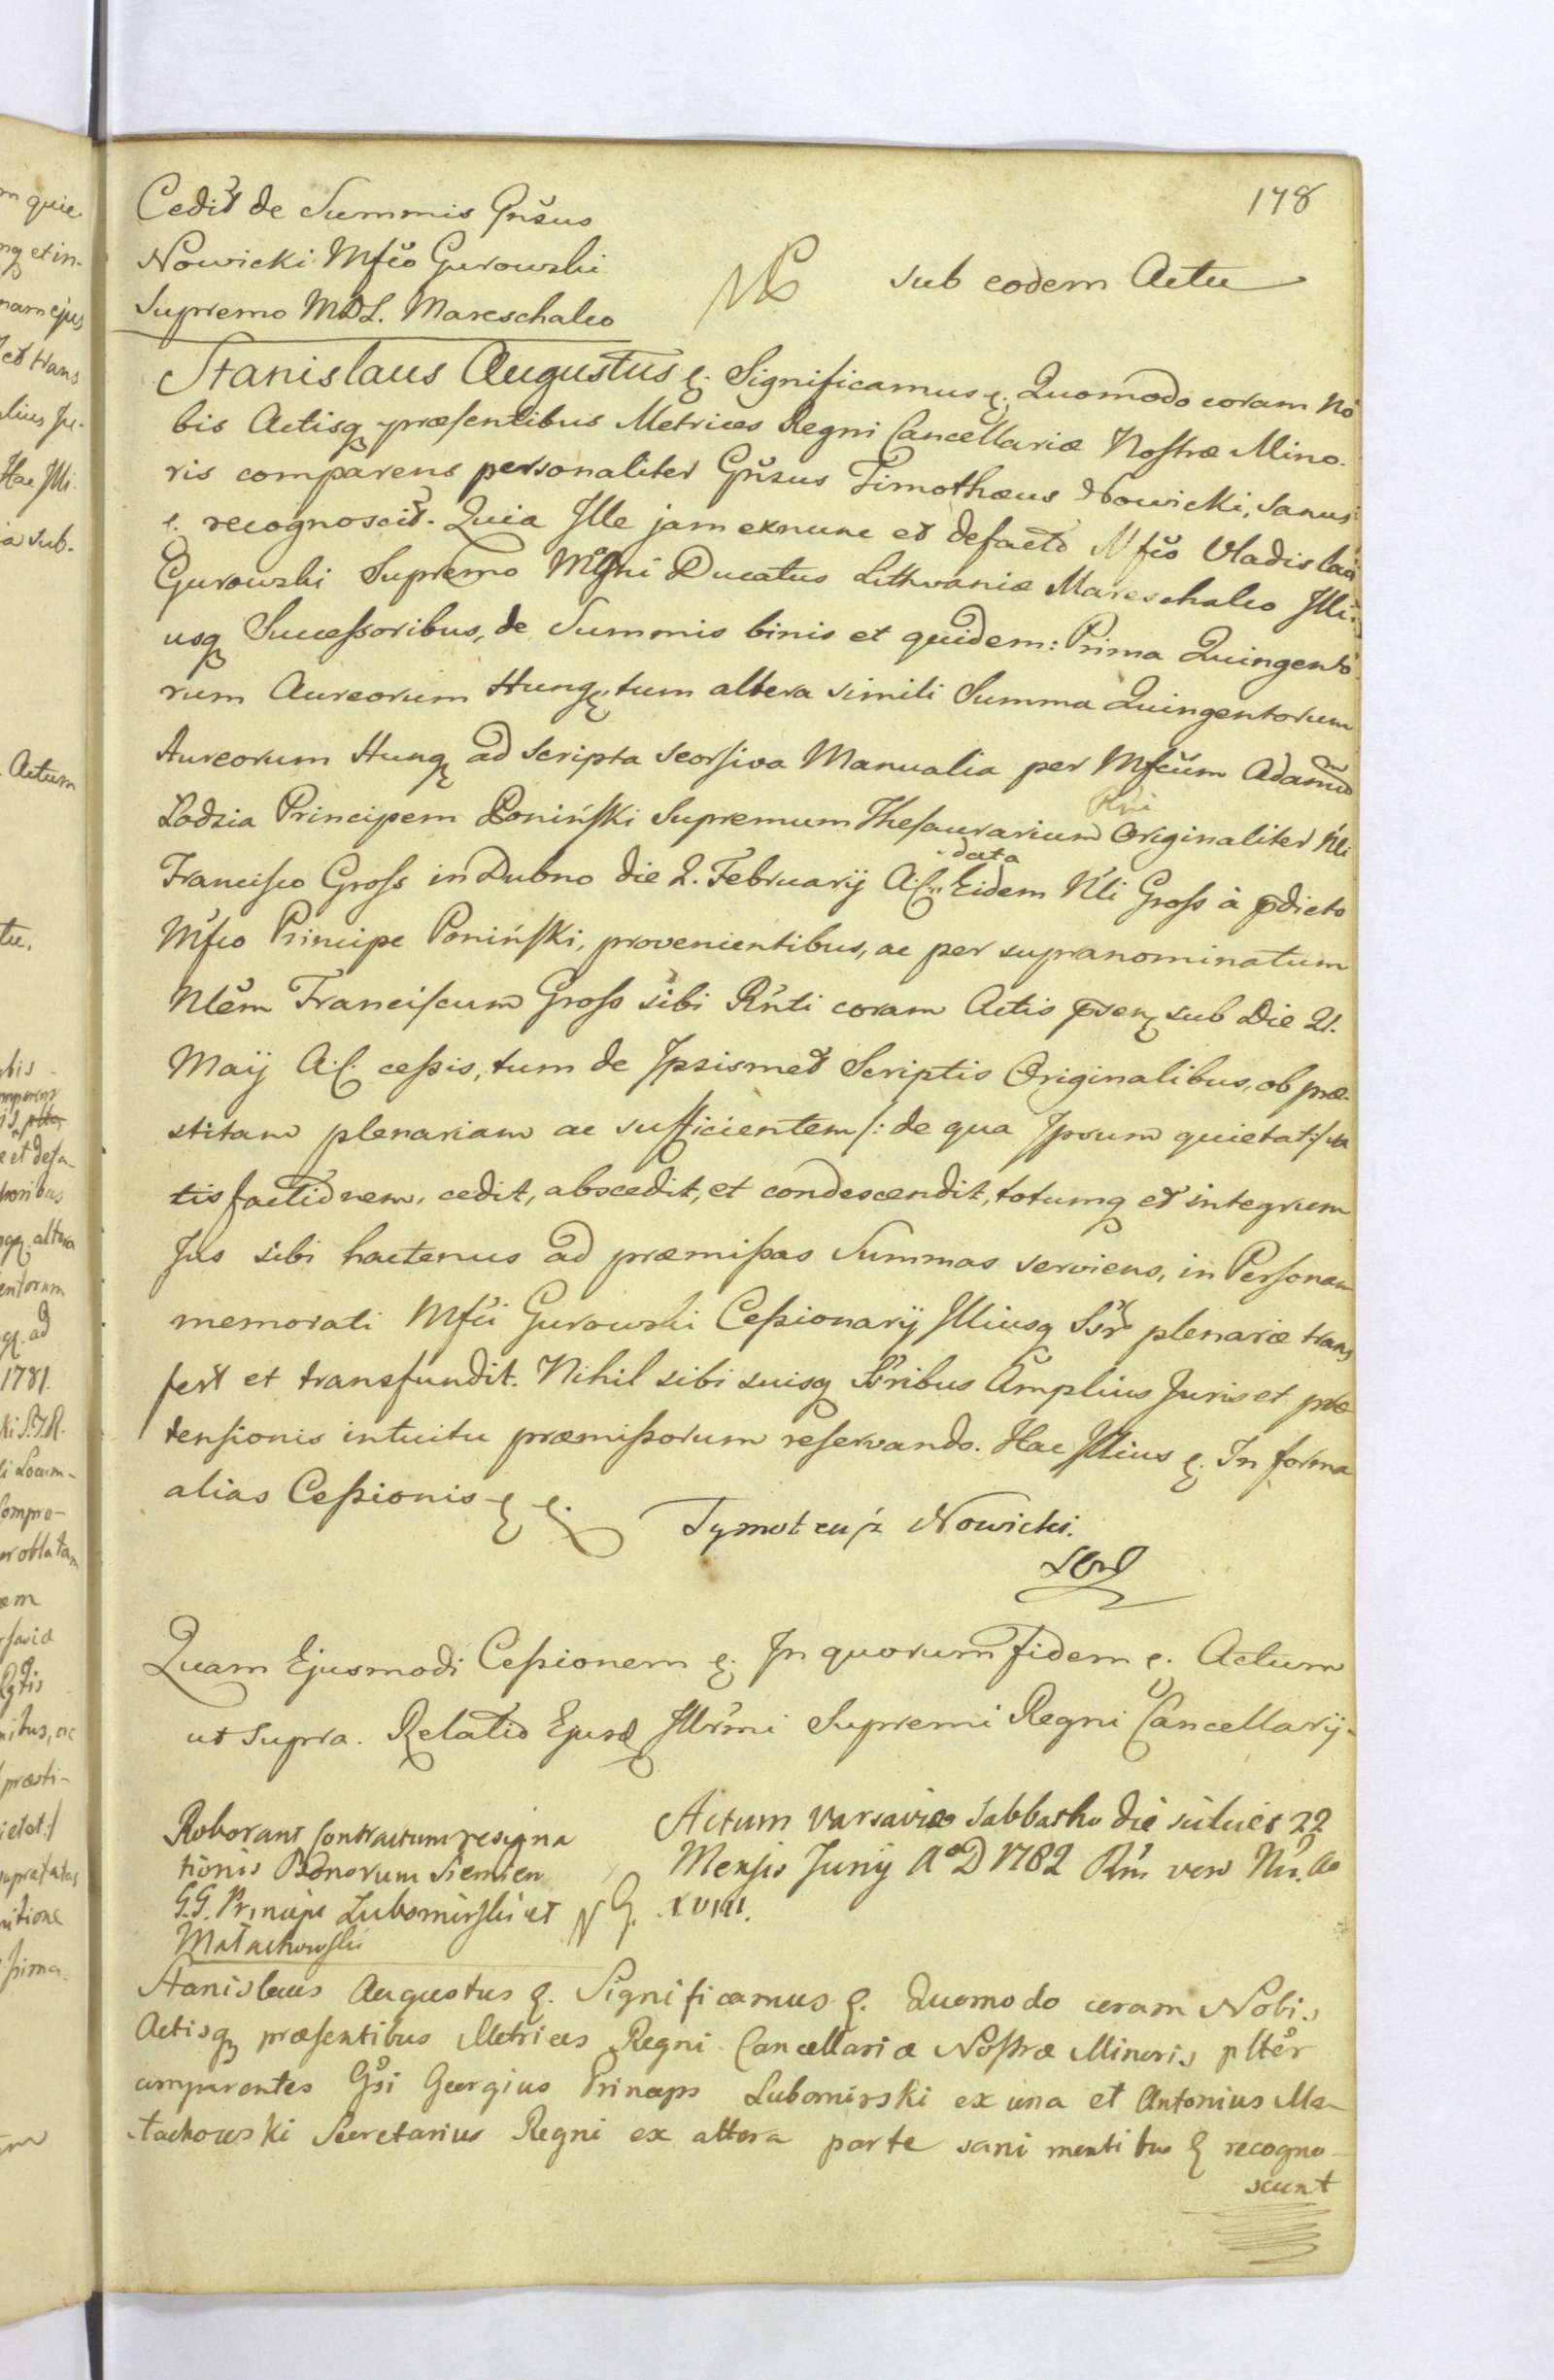 178
Cedit de Summis Gnsus
Nowicki Mfco Gurowski
Supremo MDL. Mareschalco
sub eodem Actu
Stanislaus Augustus &. Significamus &. Quomodo coram No
bis Actisq præsentibus Metrices Regni Cancellariæ Nostræ Mino-
ris comparens personaliter Gnsus Timothæus Nowicki, sanus
&. recognoscit. Quia Ille jam exnunc et defacto Mfco Vladislao
Gurowski Supremo Mgni Ducatus Lithvaniæ Mareschalco Illi-
usq Successoribus, de Summis binis et quidem: Prima Quingento
rum Aureorum Hung, tum altera simili Summa Quingentorum
Aureorum Hung ad scripta seorsiva Manualia per Mfcum Adamum
Lodzia Principem Poniński Supremum Thesaurarium Rni Originaliter Nli
Francisco Gross in Dubno die 2. February A.C. data Eidem Nli Gross à pdicto
Mfco Principe Poniński, provenientibus, ac per supranominatum
Nlem Franciscum Gross sibi Rnti coram Actis psen sub Die 21.
Maij A.C. cessis, tum de Ipsismet Scriptis Originalibus, ob præ-
stitam plenariam ac sufficientem /: de qua Ipsum quietat :/ sa
tisfactionem, cedit, abscedit, et condescendit, totumq et integrum
Jus sibi hactenus ad præmissas Summas serviens, in Personam
memorati Mfci Gurowski Cessionarij Illiusq Ssr plenarie trans
fert et transfundit. Nihil sibi suisq Ssribus Amplius Juris et præ
tensionis intuitu præmissorum reservando. Hac Illius &. In forma
alias Cessionis & &.
Tymoteusz Nowicki.
Quam Ejusmodi Cessionem &. In quorum Fidem &. Actum
ut supra. Relatio Ejusd Illrmi Supremi Regni Cancellarij.
Roborant Contractum resigna
tionis Bonorum Siemien
G.G. Princips Lubomirski et
Małachowski
Actum Varsaviæ Sabbatho die scilicet 22
Mensis Junij A°D 1782 Rni vero Nri Ao
XVIII.
Stanislaus Augustus &. Significamus &. Quomodo coram Nobis
Actisq præsentibus Metrices Regni Cancellariæ Nostræ Minoris plter
comparentes Gsi Georgius Princeps Lubomirski ex una et Antonius Ma-
łachowski Secretarius Regni ex altera parte sani mentibus & recogno-
scunt